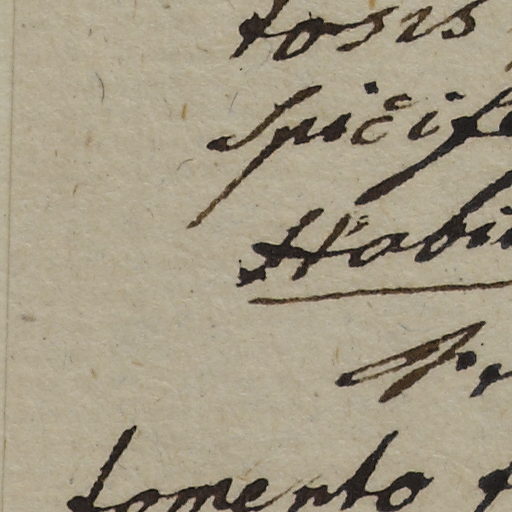 tosis
spicife
Habi
tomento